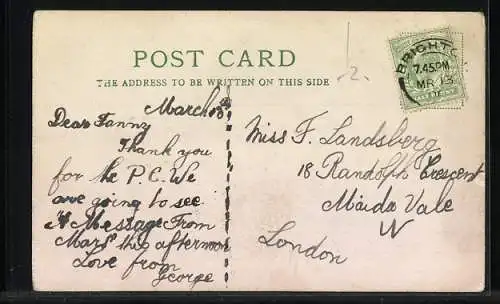 POST CARD
THE ADDRESS TO BE WRITTEN ON THIS SIDE
BRIGHTO
7.45PM
MR 13
March 13
Dear Fanny
Thank you
for the P.C. We
are going to see
A Message From
Mars this afternoon
Love from
George
Miss F. Landsberg
18 Randolph Crescent
Maida Vale
W
London